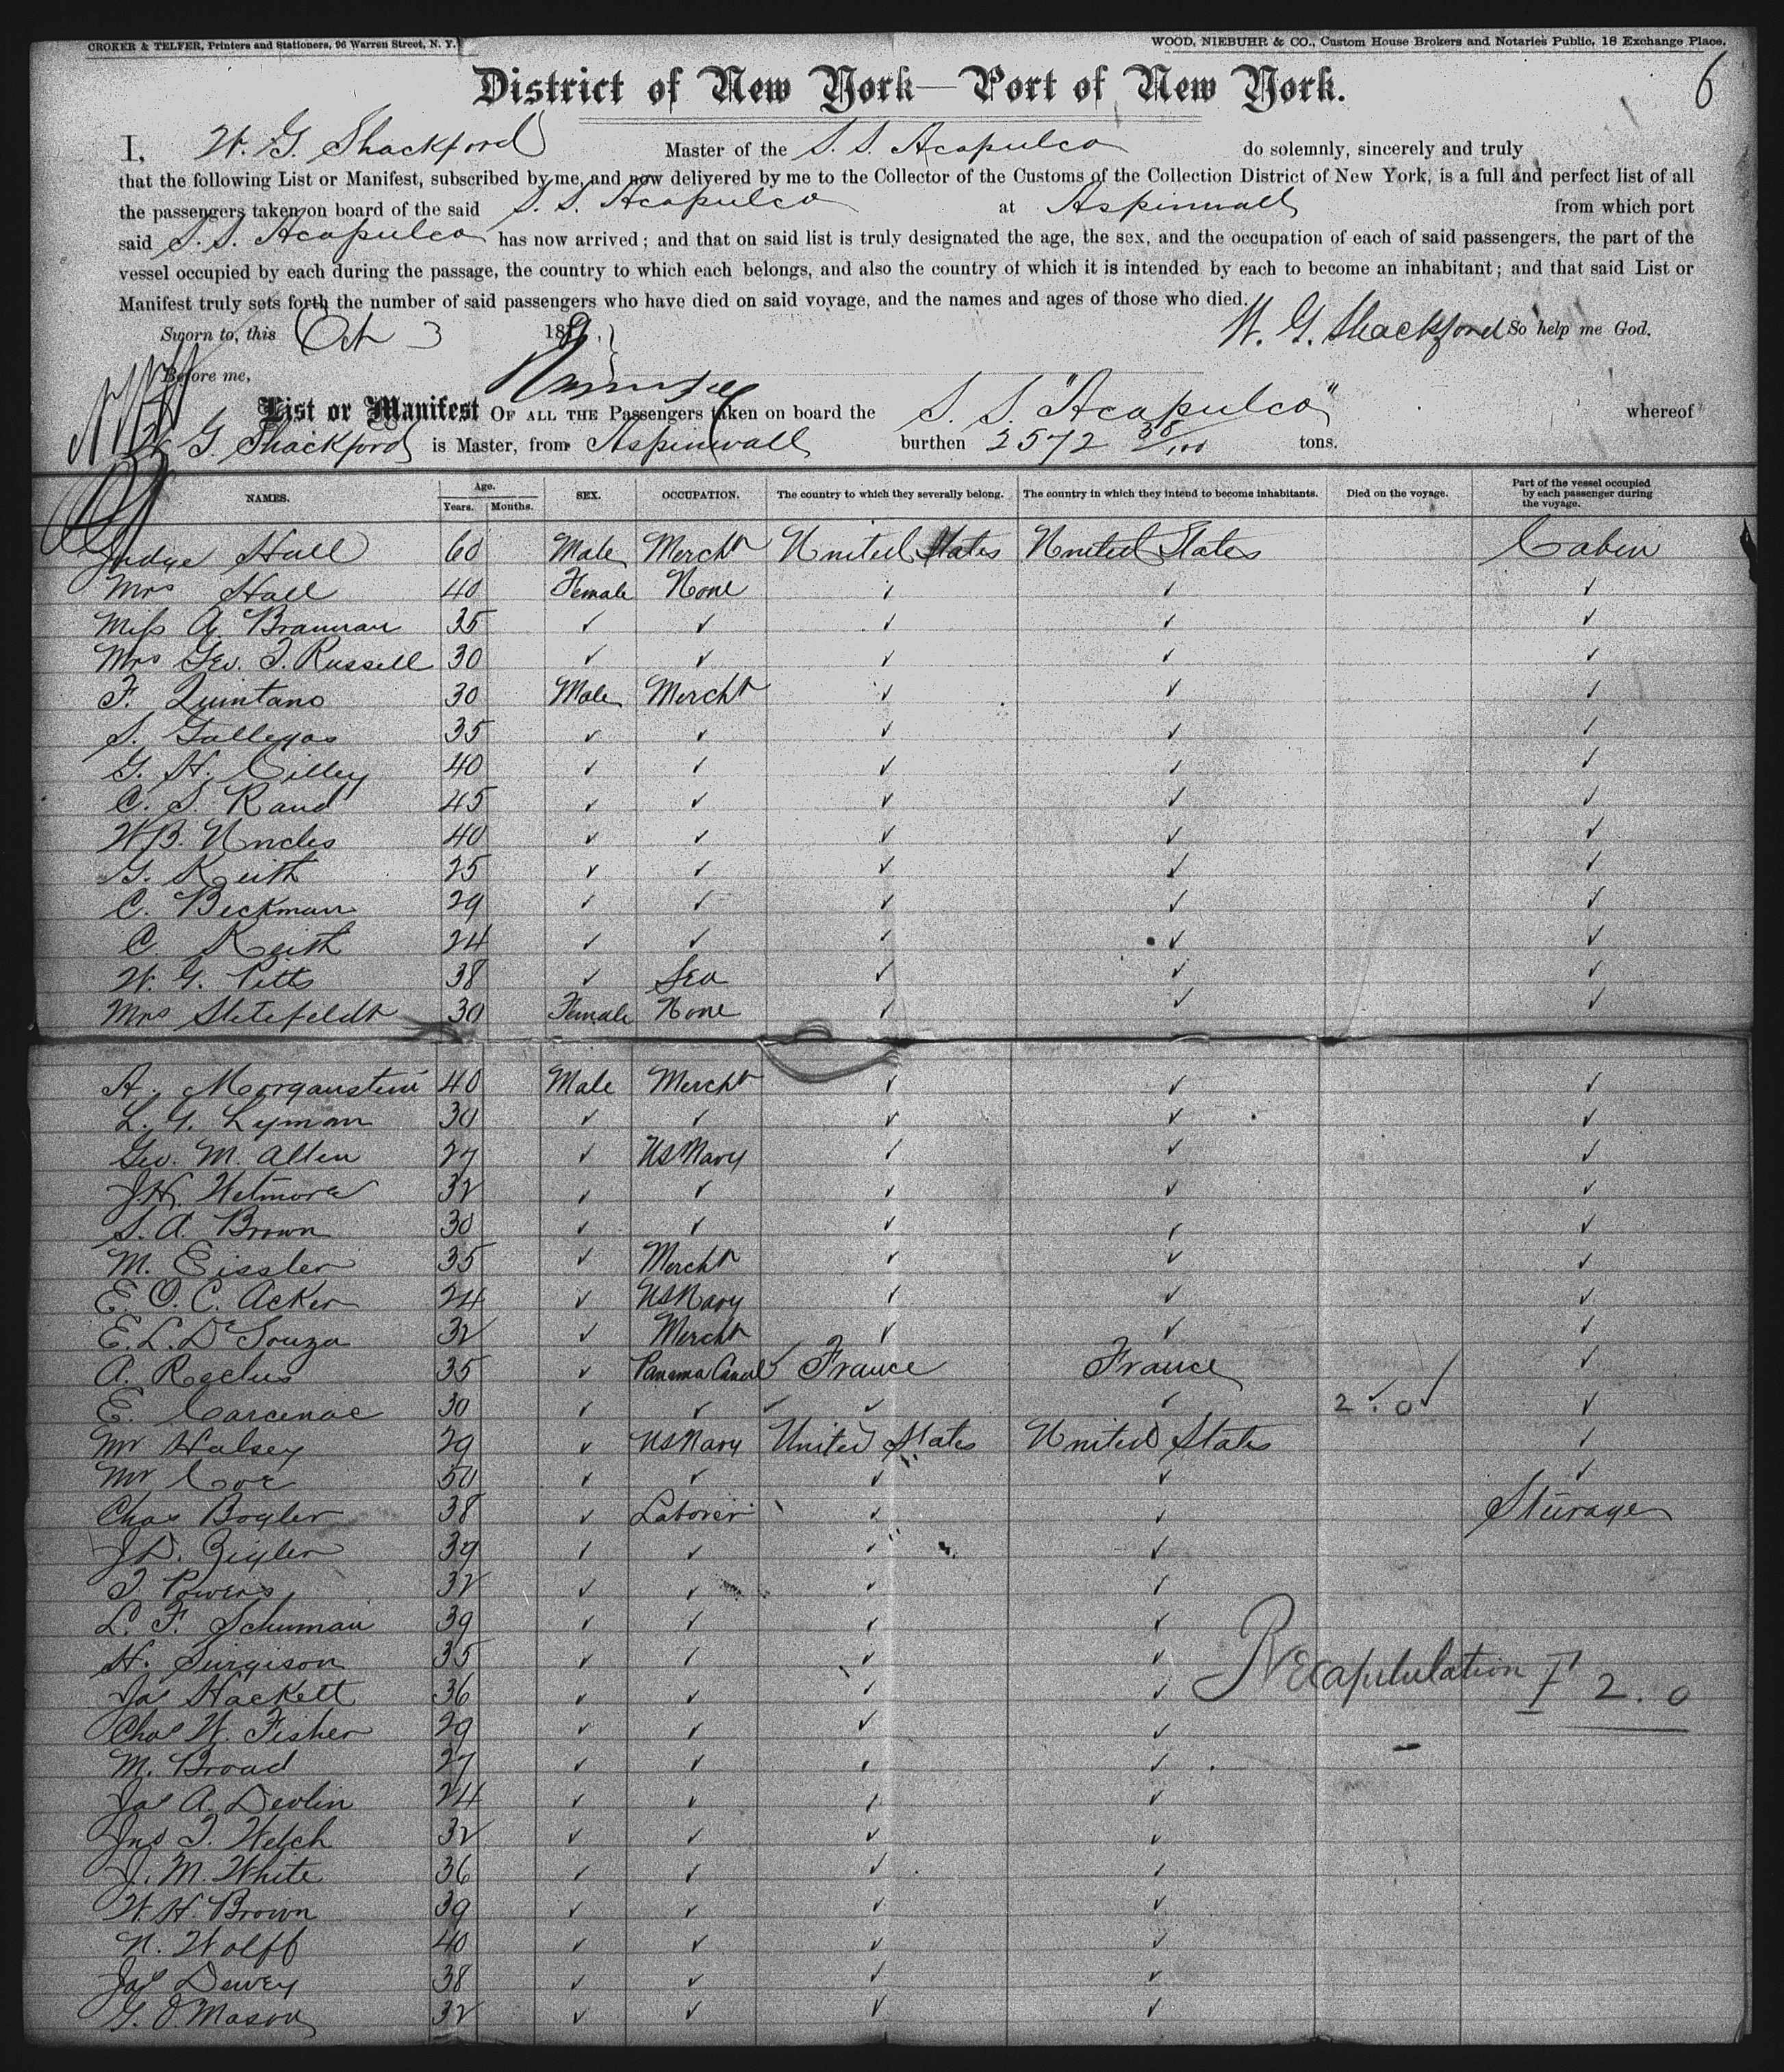 CROKER & TELFER, Printers and Stationers, 96 Warren Street, N. Y.
WOOD, NIEBUHR & CO., Custom House Brokers and Notaries Public, 18 Exchange Place.
6
District of New York—Port of New York.
I, W. G. Shackford Master of the S. S. Acapulco do solemnly, sincerely and truly
that the following List or Manifest, subscribed by me, and now delivered by me to the Collector of the Customs of the Collection District of New York, is a full and perfect list of all
the passengers taken on board of the said S. S. Acapulco at Aspinwall from which port
said S. S. Acapulco has now arrived; and that on said list is truly designated the age, the sex, and the occupation of each of said passengers, the part of the
vessel occupied by each during the passage, the country to which each belongs, and also the country of which it is intended by each to become an inhabitant; and that said List or
Manifest truly sets forth the number of said passengers who have died on said voyage, and the names and ages of those who died.
Sworn to, this Oct 3 18 W. G. Shackford So help me God.
Before me,
List or Manifest OF ALL THE Passengers taken on board the S. S. "Acapulco" whereof
W G. Shackford is Master, from Aspinwall burthen 2572 38/100 tons.
NAMES. Age. Years. Months. SEX. OCCUPATION. The country to which they severally belong. The country in which they intend to become inhabitants. Died on the voyage. Part of the vessel occupied by each passenger during the voyage.
Judge Hall 60 Male Mercht United States United States Cabin
Mrs Hall 40 Female None ✓ ✓ ✓
Miss A. Brannan 35 ✓ ✓ ✓ ✓ ✓
Mrs Geo. T. Russell 30 ✓ ✓ ✓ ✓ ✓
F. Quintano 30 Male Mercht ✓ ✓ ✓
S. Gallegos 35 ✓ ✓ ✓ ✓ ✓
G. H. Cilley 40 ✓ ✓ ✓ ✓ ✓
C. S. Rand 45 ✓ ✓ ✓ ✓ ✓
W.B. Uncles 40 ✓ ✓ ✓ ✓ ✓
G. Keith 25 ✓ ✓ ✓ ✓ ✓
C. Beckman 29 ✓ ✓ ✓ ✓ ✓
C Keith 24 ✓ ✓ ✓ ✓ ✓
W. G. Pitts 38 ✓ Sea ✓ ✓ ✓
Mrs Stetefeldt 30 Female None ✓ ✓ ✓
A. Morganstein 40 Male Mercht ✓ ✓ ✓
L. G. Lyman 30 ✓ ✓ ✓ ✓ ✓
Geo. M. Allen 27 ✓ US Navy ✓ ✓ ✓
J.H. Wetmore 32 ✓ ✓ ✓ ✓ ✓
S. A. Brown 30 ✓ ✓ ✓ ✓ ✓
M. Eissler 35 ✓ Mercht ✓ ✓ ✓
E. O. C. Acker 24 ✓ US Navy ✓ ✓ ✓
E. L. De Souza 32 ✓ Mercht ✓ ✓ ✓
A. Reclus 35 ✓ Panama Canal ✓ France France ✓
E. Carcenac 30 ✓ ✓ ✓ ✓ ✓ 2 . 0 ✓
Mr Halsey 29 ✓ US Navy United States United States ✓
Mr Coe 50 ✓ ✓ ✓ ✓ ✓
Chas Bogler 38 ✓ Laborer ✓ ✓ Steerage
J.D. Zigler 39 ✓ ✓ ✓ ✓
T Powers 32 ✓ ✓ ✓ ✓
L. F. Schuman 39 ✓ ✓ ✓ ✓
H. Surgison 35 ✓ ✓ ✓ ✓
Jas Hackett 36 ✓ ✓ ✓ ✓
Recapitulation F 2 . 0
Chas W. Fisher 29 ✓ ✓ ✓ ✓
M. Broad 27 ✓ ✓ ✓ ✓
Jas A. Devlin 24 ✓ ✓ ✓ ✓
Jno T. Welch 32 ✓ ✓ ✓ ✓
J. M. White 36 ✓ ✓ ✓ ✓
W. H. Brown 39 ✓ ✓ ✓ ✓
N. Wolff 40 ✓ ✓ ✓ ✓
Jas Dewey 38 ✓ ✓ ✓ ✓
G. O Mason 32 ✓ ✓ ✓ ✓